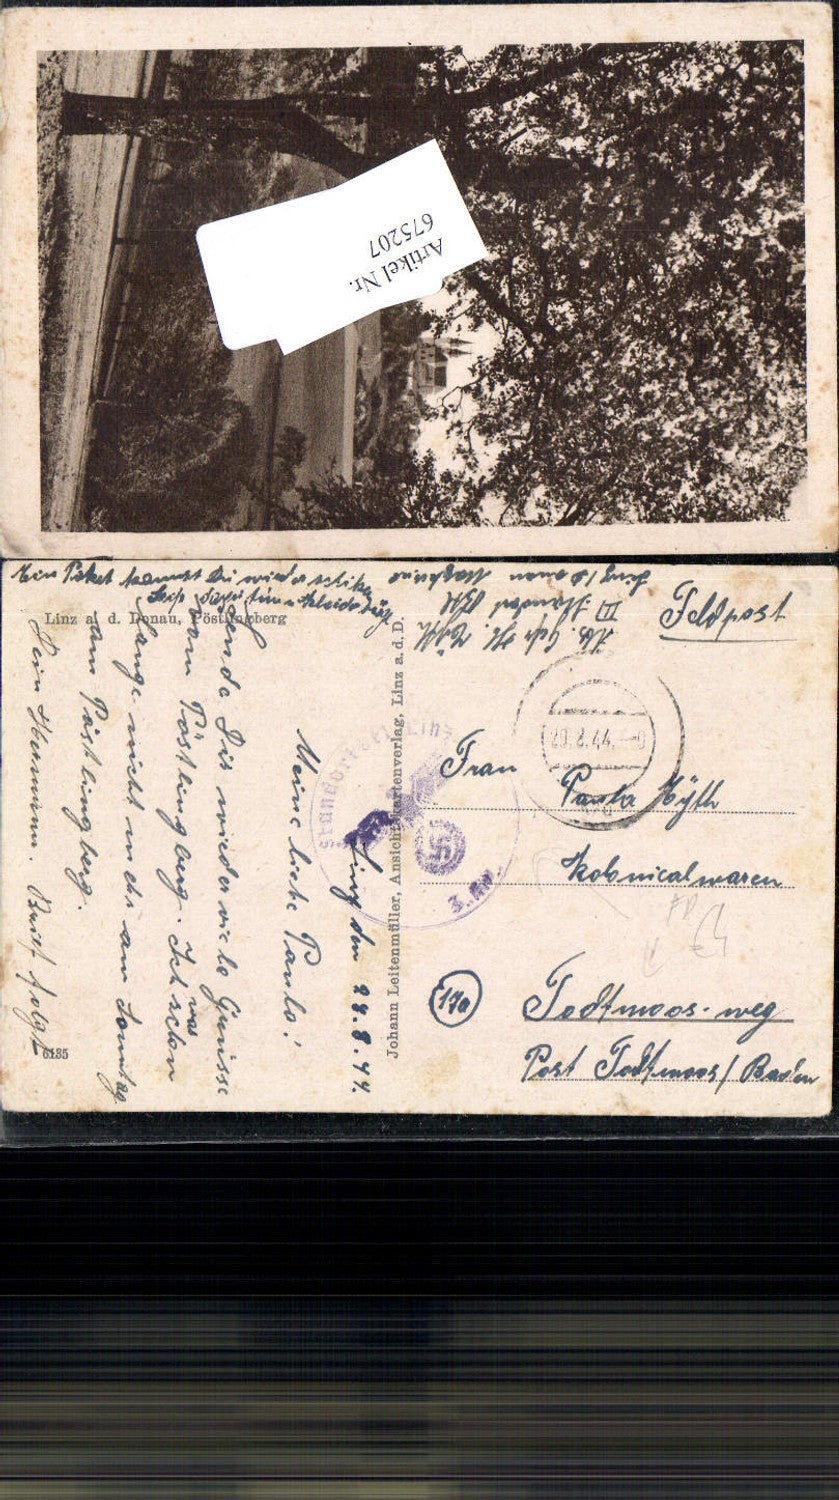 Artikel Nr.
675207
Ein Paket kommst Du wieder
Linz a. d. Donau, Pöstlingberg
Feldpost
Linz/Donau
Linz den 28.8.44.
Meine liebe Paula!
Sende Dir wieder viele Grüsse
vom Pöstlingberg. Ich war schon
lange nicht mehr am Sonntag
am Pöstlingberg.
Dein Hermann. Brief folgt
6135
Johann Leitenmüller, Ansichtskartenverlag, Linz a. d. D.
Standort
Linz
3. 
8.44.
Frau
Paula
Kolonialwaren
17a
Todtmoos-weg
Post Todtmoos/Baden